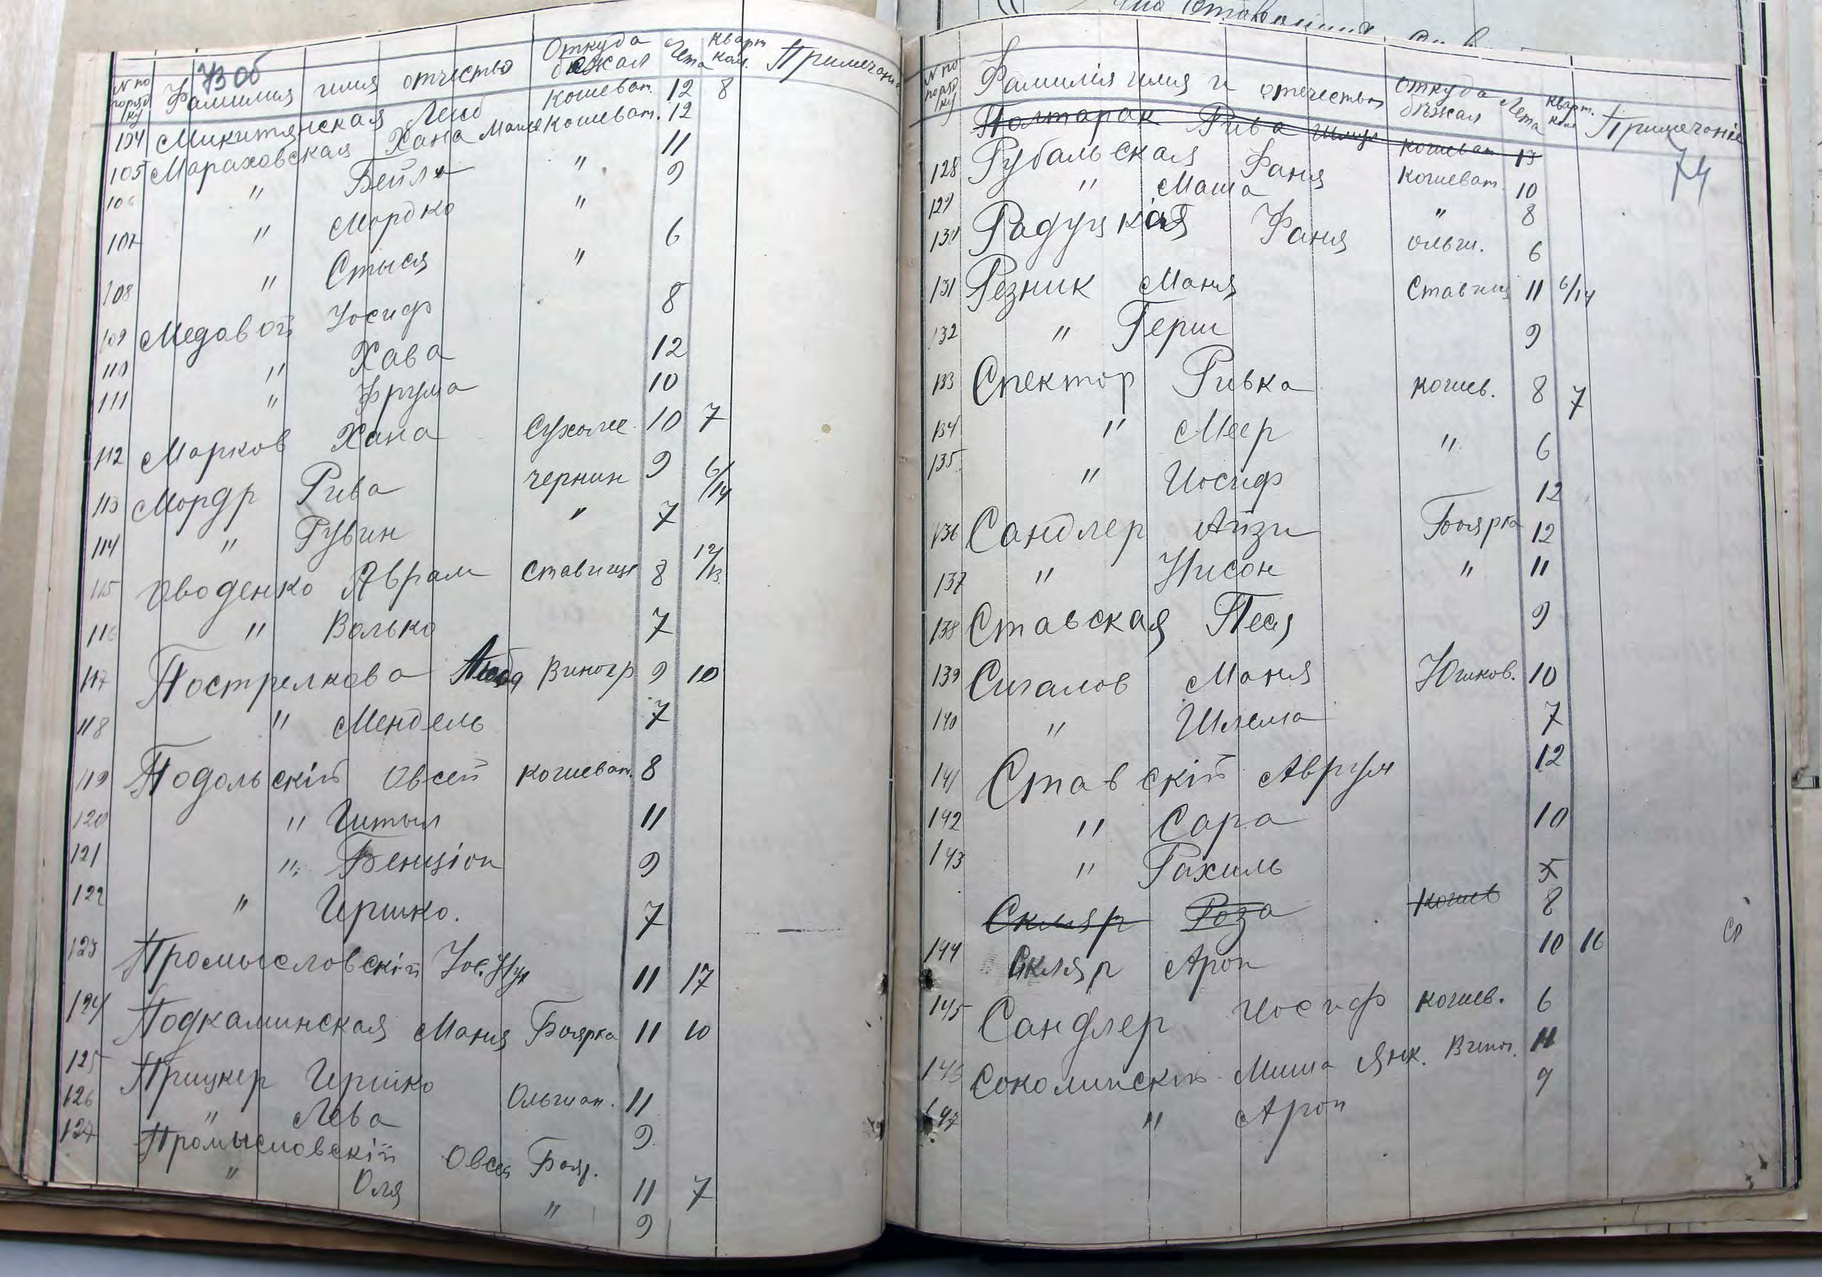 что
73 об
N по поряд ку Фамилия имя отчество Откуда бежал Лета кварт кол. Примечание
104 Микитянская Лейб Кошеват. 12 8
105 Мараховская Хана Кошеват. 12
106 " Бейля " 11
107 " Мордко " 9
108 " Стыся " 6
109 Медовой Иосиф 8
110 " Хава 12
111 " Фрума 10
112 Марков Хана Сухолес. 10 7
113 Мордр Рива чернин 9 6/14
114 " Рувин " 7
115 Оводенко Аврам Ставищи 8 12/13
116 " Волько 7
117 Пострелкова Виногр 9 10
118 " Мендель 7
119 Подольскій Овсей кошеват. 8
120 " Гитыл 11
121 " Бенціон 9
122 " Гершко. 7
123 Промысловскій Иос. 11 17
124 Подкаминская Маня Боярка 11 10
125 Прицкер Гершко Ольшан. 11
126 " Лева 9
127 Промысловскій Овсей Бояр. 11 7
" Оля " 9
N по поряд ку Фамилія имя и отечество Откуда бѣжал Лета кварт. кол Примечаніе
74
Полтарак Рива кошеват 13
128 Рубальская Фаня кошеват. 10
129 " Маша " 8
130 Радуцкая Фаня ольш. 6
131 Резник Маня Ставищ 11 6/14
132 " Герш 9
133 Спектор Ривка кошев. 8 7
134 " Меер " 6
135 " Иосиф 12
136 Сандлер Айзи Боярка 12
137 " Нисон " 11
138 Ставская Песя 9
139 Сигалов Маня Юшков. 10
140 " Шлема 7
141 Ставскій Аврум 12
142 " Сара 10
143 " Рахиль 5
Скляр Роза кошев 8
144 Скляр Арон 10 16
145 Сандлер Иосиф кошев. 6
146 Соколинскій Миша Янк. Виног. 11
147 " Арон 9